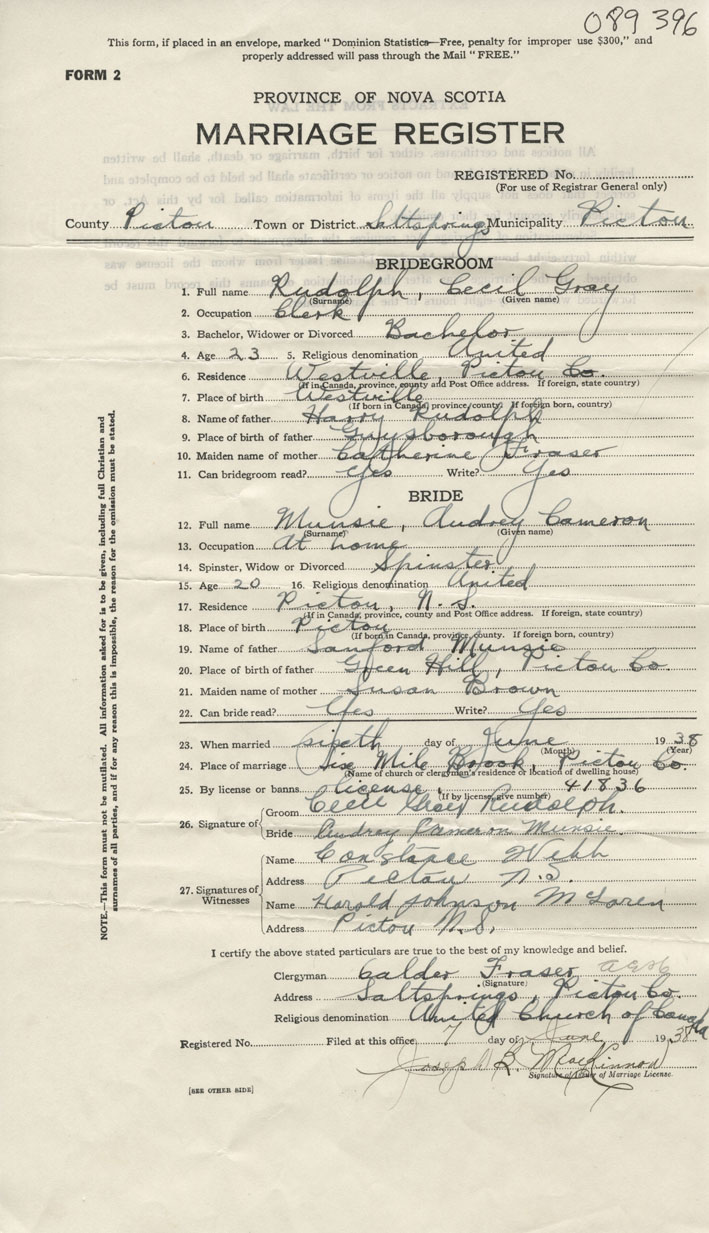 089 396
This form, if placed in an envelope, marked "Dominion Statistics—Free, penalty for improper use $300," and
properly addressed will pass through the Mail "FREE."
FORM 2
PROVINCE OF NOVA SCOTIA
MARRIAGE REGISTER
REGISTERED No.
(For use of Registrar General only)
County Pictou Town or District Saltsprings Municipality Pictou
BRIDEGROOM
1. Full name Rudolph, Cecil Gray
(Surname) (Given name)
2. Occupation Clerk
3. Bachelor, Widower or Divorced Bachelor
4. Age 23 5. Religious denomination United
6. Residence Westville, Pictou Co.
(If in Canada, province, county and Post Office address. If foreign, state country)
7. Place of birth Westville
(If born in Canada, province, county. If foreign born, country)
8. Name of father Harry Rudolph
9. Place of birth of father Guysborough
10. Maiden name of mother Catherine Fraser
11. Can bridegroom read? Yes Write? Yes
BRIDE
12. Full name Munsie, Audrey Cameron
(Surname) (Given name)
13. Occupation At home
14. Spinster, Widow or Divorced Spinster
15. Age 20 16. Religious denomination United
17. Residence Pictou, N.S.
(If in Canada, province, county and Post Office address. If foreign, state country)
18. Place of birth Pictou
(If born in Canada, province, county. If foreign born, country)
19. Name of father Sanford Munsie
20. Place of birth of father Green Hill, Pictou Co.
21. Maiden name of mother Susan Brown
22. Can bride read? Yes Write? Yes
23. When married sixth day of June 1938
(Month) (Year)
24. Place of marriage Six Mile Brook, Pictou Co.
(Name of church or clergyman's residence or location of dwelling house)
25. By license or banns license (If by license, give number) 41836
26. Signature of
Groom Cecil Gray Rudolph.
Bride Audrey Cameron Munsie.
27. Signatures of Witnesses
Name Constance Webb
Address Pictou N.S.
Name Harold Johnson McLaren
Address Pictou N.S.
I certify the above stated particulars are true to the best of my knowledge and belief.
Clergyman Calder Fraser
(Signature)
Address Saltsprings, Pictou Co.
Religious denomination United Church of Canada
Registered No. Filed at this office 7 day of June 1938
Joseph R. MacKinnon
Signature of Issuer of Marriage License.
[SEE OTHER SIDE]
NOTE.—This form must not be mutilated. All information asked for is to be given, including full Christian and
surnames of all parties, and if for any reason this is impossible, the reason for the omission must be stated.